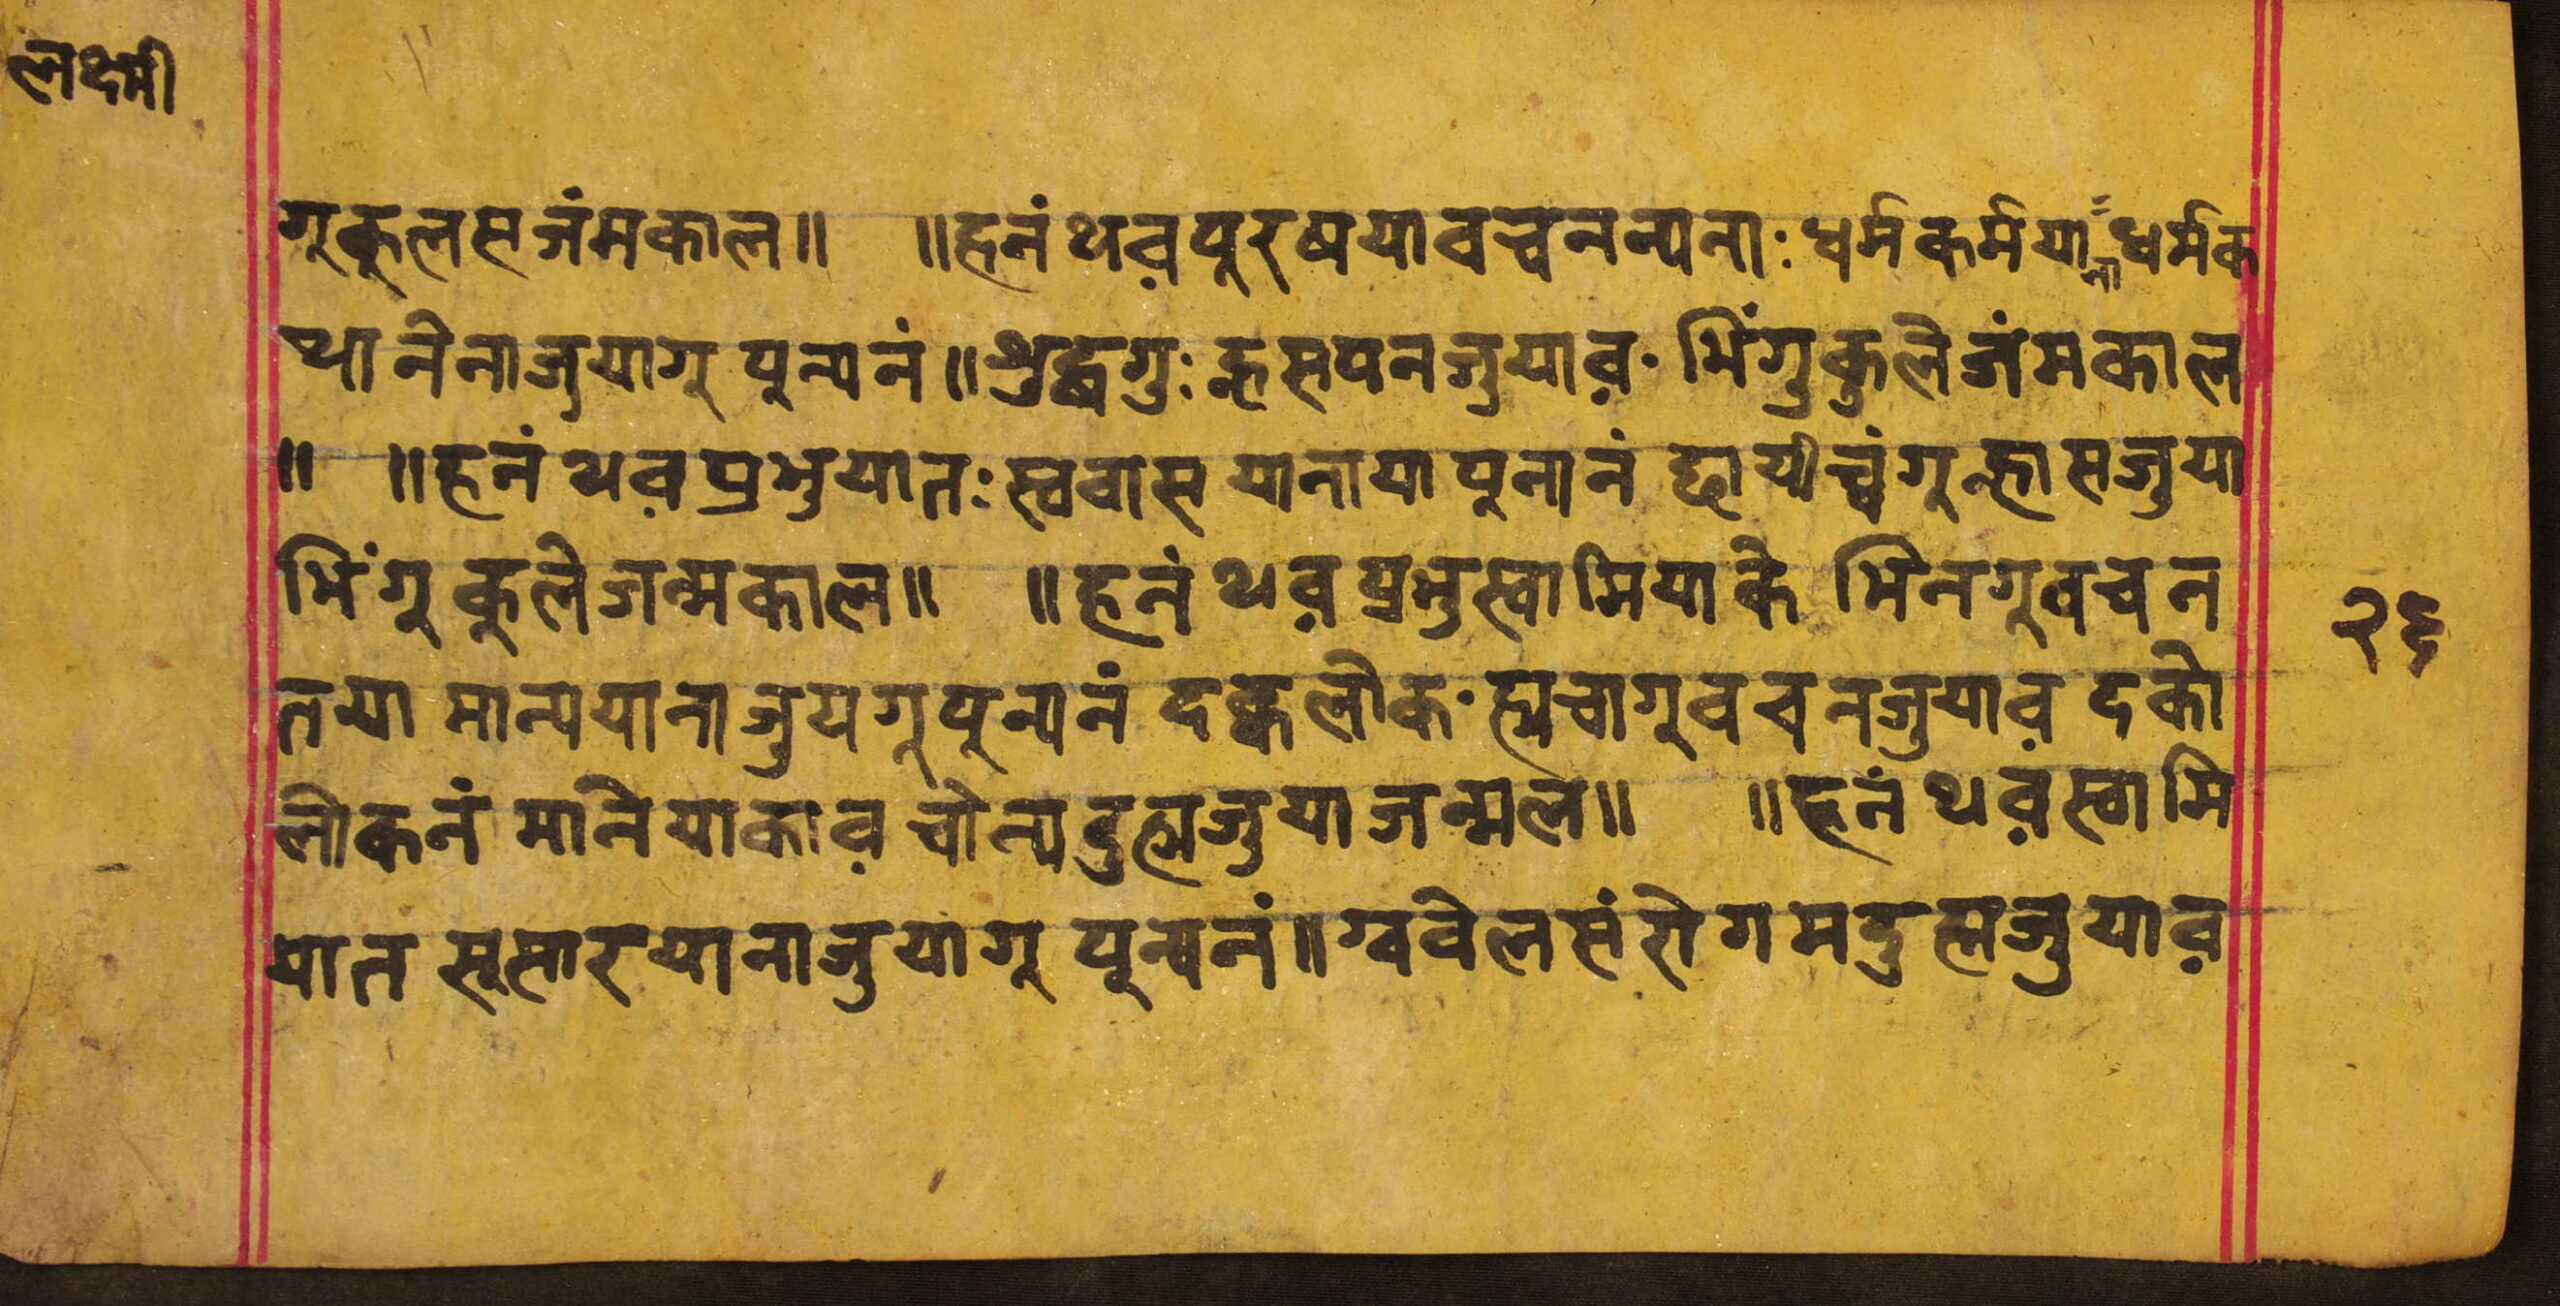 लक्ष्मी
गूकूलसजंमकाल॥ ॥हनं थव़पूरषयावच्चनन्यनाः धर्मकर्मयाना धर्मक
थानेनाजुयागू पून्यनं॥ शुद्धगुः ह्रसपनजुयाव़· भिंगुकुलेजंमकाल
॥ ॥हनं थव़प्रभुयातः स्ववास यानाया पूनानं छायीच्वंगू ह्नासजुया
भिंगू कूलेजन्मकाल॥ ॥हनं थव़प्रभुस्वामियाके भिनगूवचन
तया मान्ययानाजुयगूपून्यनं दक्कलोक· ह्मचागूवचनजुयाव़ दको
लोकनं मानेयाकाव़ चोन्यदुह्मजुया जन्मल॥ ॥हनं थव़स्वामि
यात सूसारयानाजुयागू पून्यनं॥ ग्ववेलसं रोगमदुह्मजुयाव़
२६